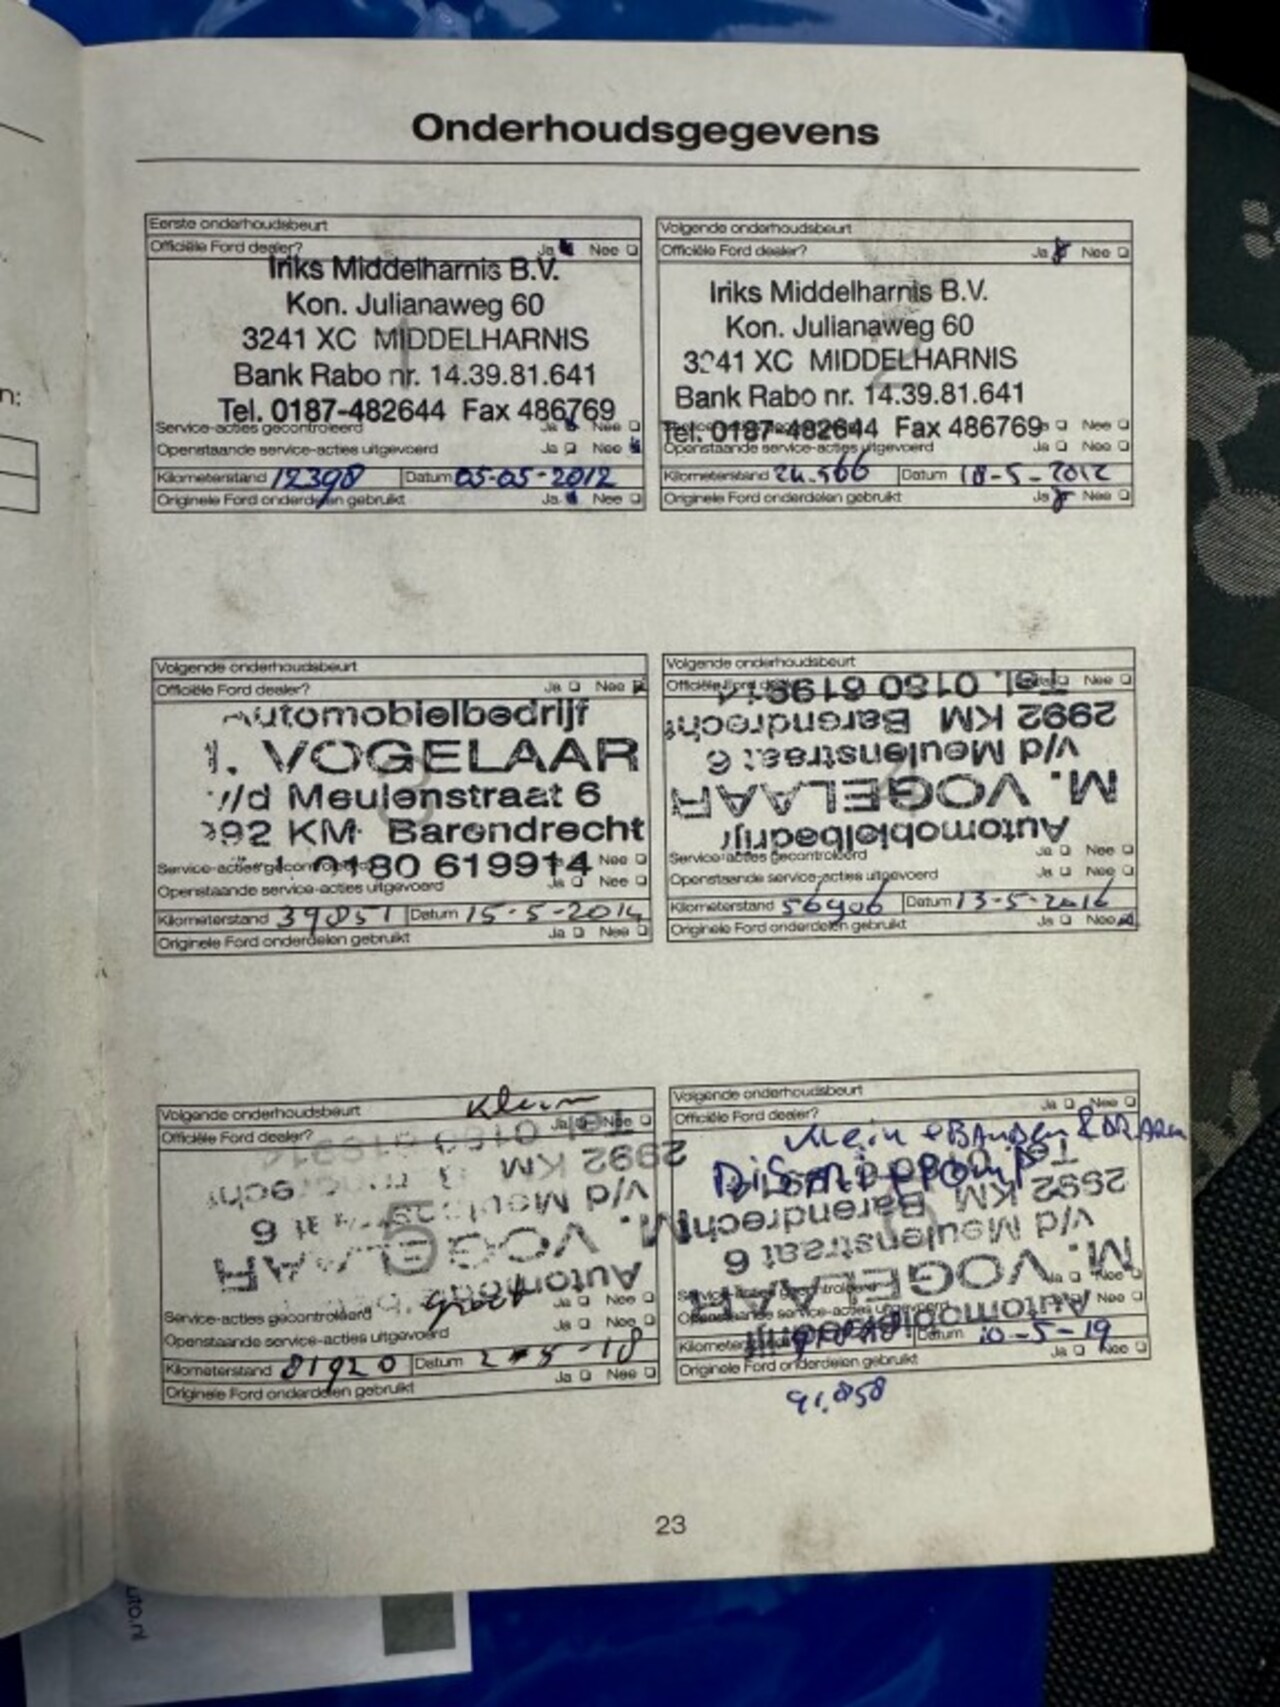 Onderhoudsgegevens
Eerste onderhoudsbeurt
Officiële Ford dealer? Ja Nee
Iriks Middelharnis B.V.
Kon. Julianaweg 60
3241 XC MIDDELHARNIS
Bank Rabo nr. 14.39.81.641
Tel. 0187-482644 Fax 486769
Service-acties gecontroleerd Ja Nee
Openstaande service-acties uitgevoerd Ja Nee
Kilometerstand 12398 Datum 05-05-2012
Originele Ford onderdelen gebruikt Ja Nee
Volgende onderhoudsbeurt
Officiële Ford dealer? Ja Nee
Iriks Middelharnis B.V.
Kon. Julianaweg 60
3241 XC MIDDELHARNIS
Bank Rabo nr. 14.39.81.641
Tel. 0187-482644 Fax 486769
Nee
Openstaande service-acties uitgevoerd Ja Nee
Kilometerstand 24.566 Datum 18-5-2012
Originele Ford onderdelen gebruikt Ja Nee
Volgende onderhoudsbeurt
Officiële Ford dealer? Ja Nee
Automobielbedrijf
VOGELAAR
v/d Meulenstraat 6
92 KM Barendrecht
0180 619914
Service-acties gecontroleerd Nee
Openstaande service-acties uitgevoerd Ja Nee
Kilometerstand 39051 Datum 15-5-2014
Originele Ford onderdelen gebruikt Ja Nee
Volgende onderhoudsbeurt
Officiële Ford Nee
Automobielbedrijf
M. VOGELAAR
v/d Meulenstraat 6
2992 KM Barendrecht
Tel. 0180 619914
Service-acties gecontroleerd Ja Nee
Openstaande service-acties uitgevoerd Ja Nee
Kilometerstand 56906 Datum 13-5-2016
Originele Ford onderdelen gebruikt Ja Nee
Volgende onderhoudsbeurt Klein
Officiële Ford dealer? Ja Nee
M. VOGELAAR
v/d 6
2992 KM
Service-acties gecontroleerd groot Ja Nee
Openstaande service-acties uitgevoerd Ja Nee
Kilometerstand 81920 Datum 2-5-18
Originele Ford onderdelen gebruikt Ja Nee
Volgende onderhoudsbeurt
Officiële Ford dealer? Ja Nee
Klein
Automobielbedrijf
M. VOGELAAR
v/d Meulenstraat 6
2992 KM Barendrecht
Ja Nee
Nee
Datum 10-5-19
Originele Ford onderdelen gebruikt Ja Nee
91.858
23